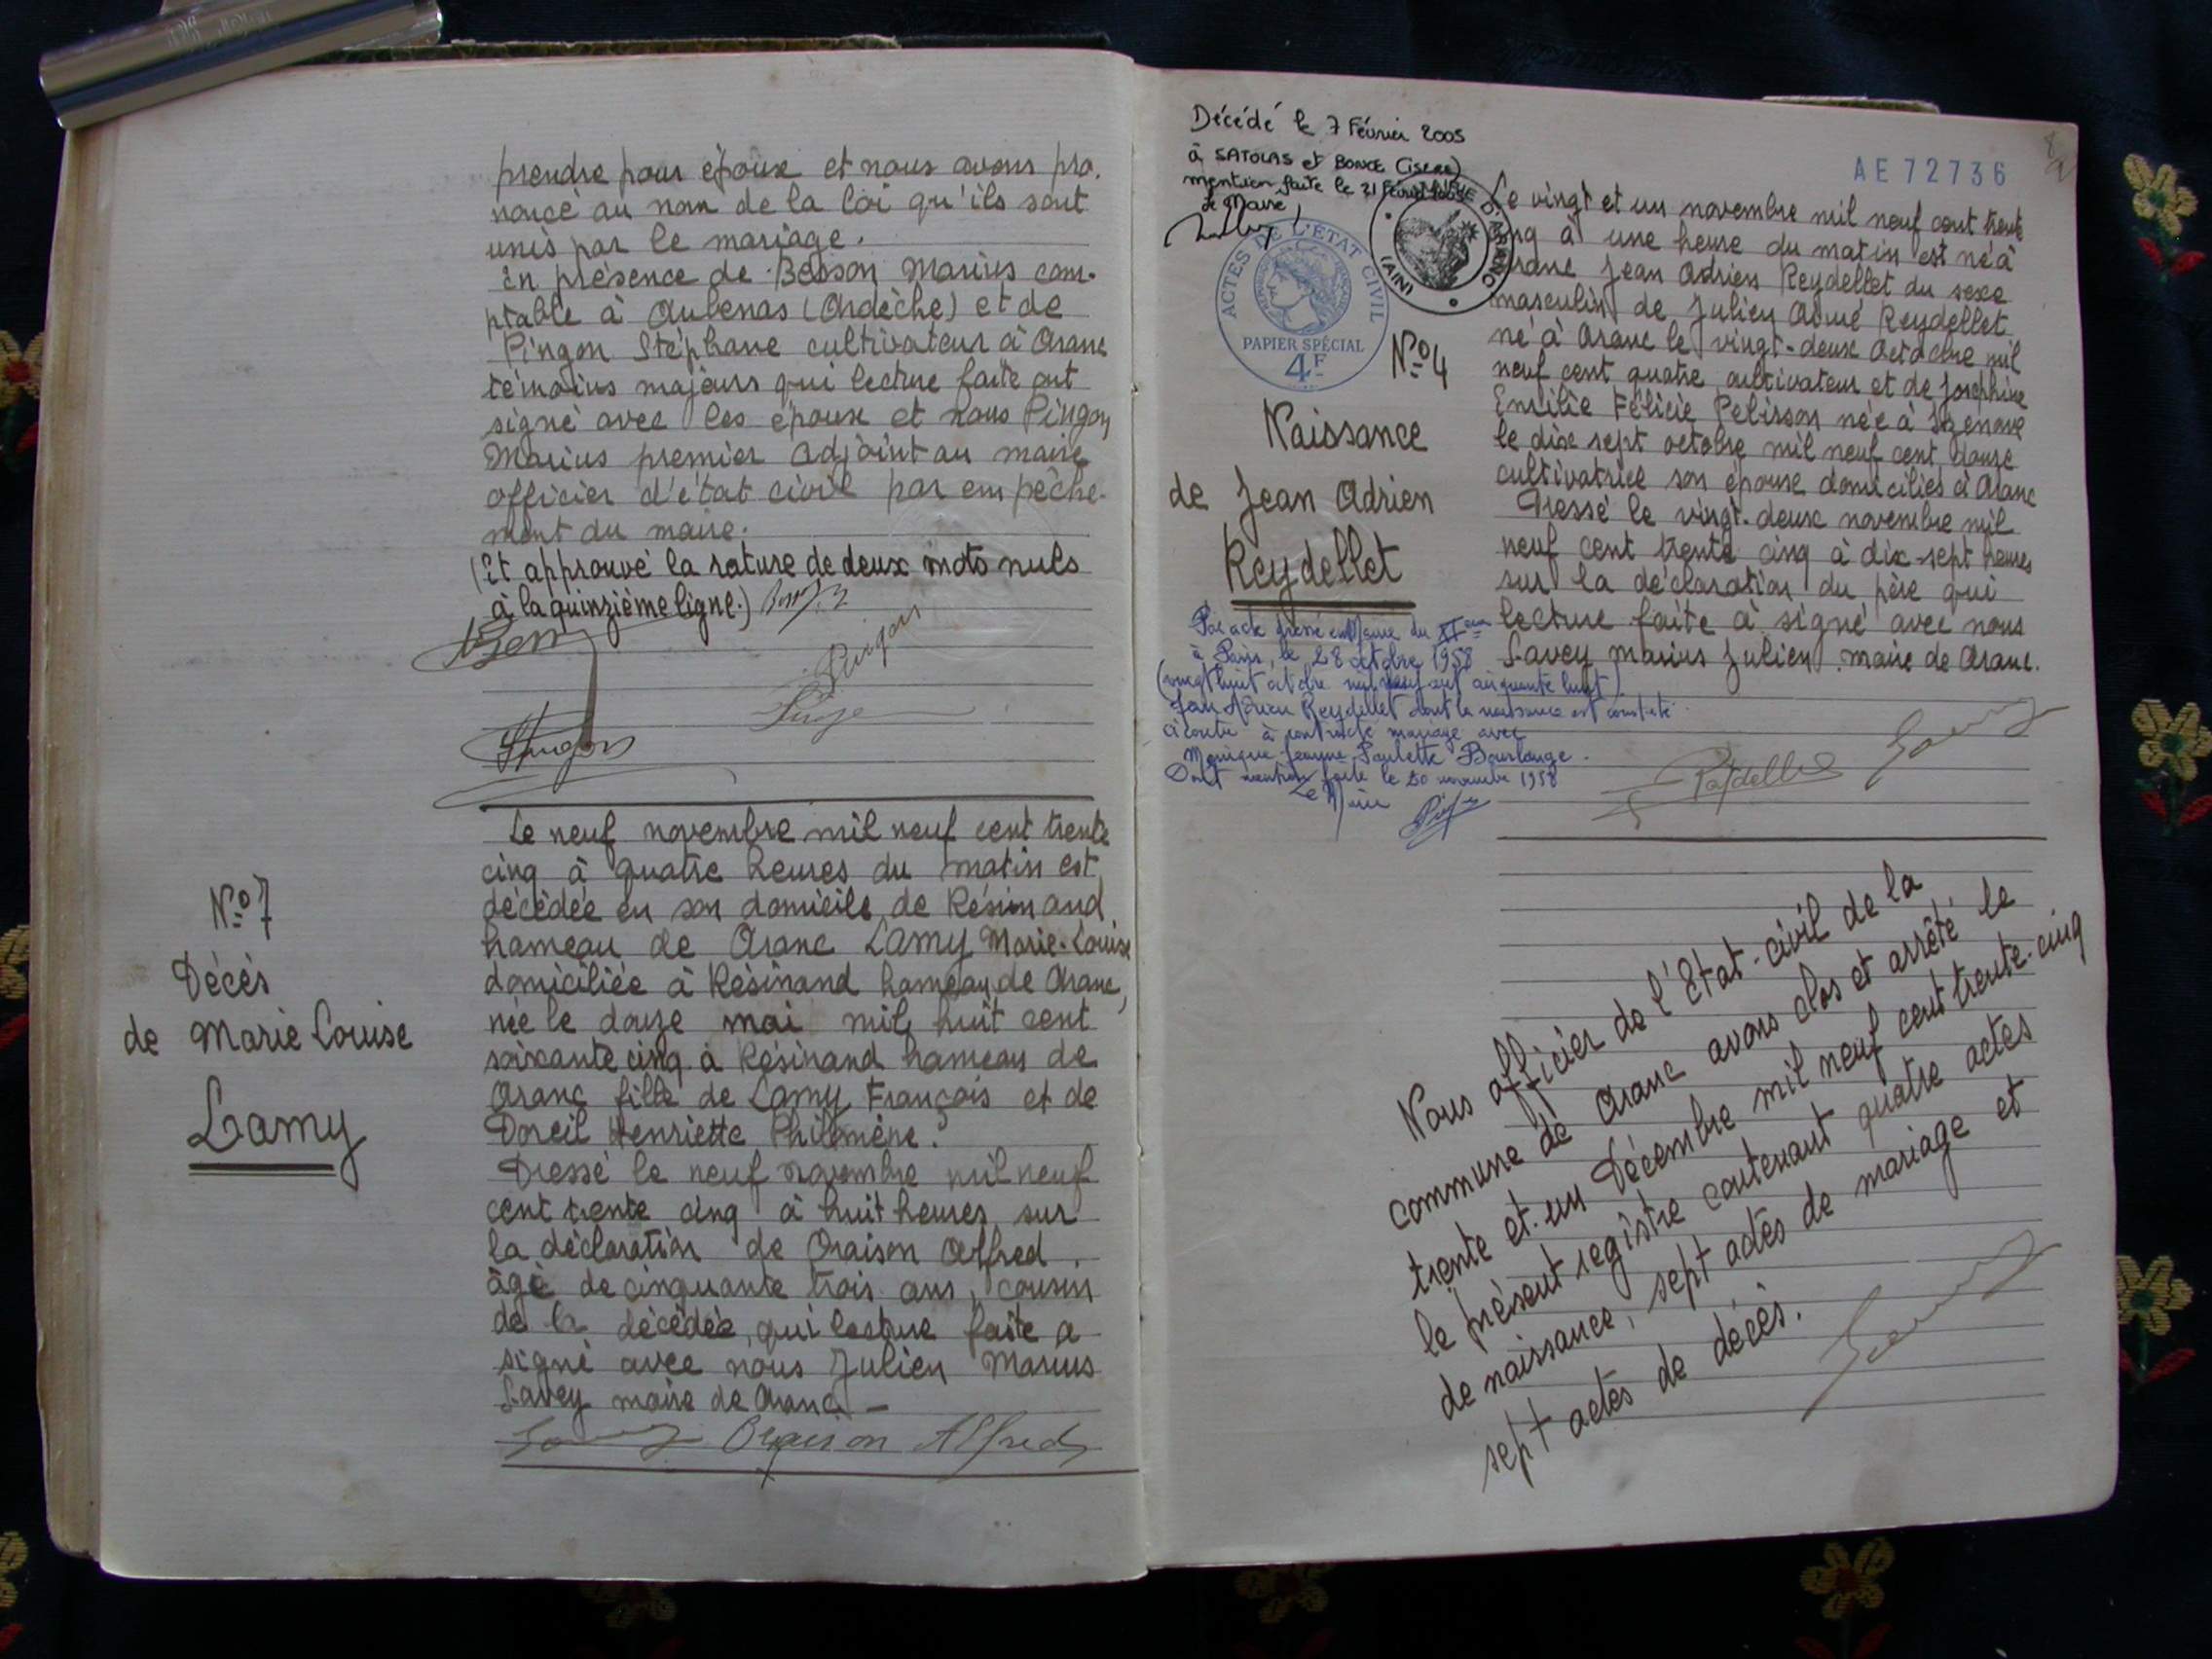 prendre pour époux et nous avons pro.
noncé au nom de la loi qu'ils sont
unis par le mariage.
En présence de Besson Marius com-
ptable à Aubenas (Ardèche) et de
Pingon Stéphane cultivateur à Aranc
témoins majeurs qui lecture faite ont
signé avec les époux et nous Pingon
Marius premier adjoint au maire
officier d'état civil par empêche-
ment du maire.
(Et approuvé la rature de deux mots nuls
à la quinzième ligne.)
Pingon
Pingon
N° 7
Décès
de Marie Louise
Lamy
Le neuf novembre mil neuf cent trente
cinq à quatre heures du matin est
décédée en son domicile de Résinand
hameau de Aranc Lamy Marie-Louise
domiciliée à Résinand hameau de Aranc,
née le douze mai mil huit cent
soixante cinq à Résinand hameau de
Aranc fille de Lamy François et de
Doreil Henriette Philomène.
Dressé le neuf novembre mil neuf
cent trente cinq à huit heures sur
la déclaration de Oraison Alfred
âgé de cinquante trois ans, cousin
de la décédée, qui lecture faite a
signé avec nous Julien Marius
Savey maire de Aranc -
Savey Oraison Alfred
Décédé le 7 Février 2005
à SATOLAS et BONCE (Isère)
mention faite le 21 Février 2005
Le Maire,
MAIRIE D'ARANC
(AIN)
ACTES DE L'ETAT CIVIL
PAPIER SPÉCIAL
4F
N° 4
Naissance
de Jean Adrien
Reydellet
Par acte dressé en Mairie du XIème
à Paris, le 28 octobre 1958
(vingt huit octobre mil neuf cent cinquante huit)
Jean Adrien Reydellet dont la naissance est constatée
ci contre à contracté mariage avec
Monique Jeanne Paulette Bourlange.
Dont mention faite le 20 novembre 1958
Le Maire
AE72736
Le vingt et un novembre mil neuf cent trente
cinq à une heure du matin est né à
Aranc Jean Adrien Reydellet du sexe
masculin de Julien Aimé Reydellet
né à Aranc le vingt-deux Octobre mil
neuf cent quatre cultivateur et de Joséphine
Emilie Félicie Pelisson née à Izenave
le dix sept octobre mil neuf cent douze
cultivatrice son épouse domiciliés à Aranc
Dressé le vingt-deux novembre mil
neuf cent trente cinq à dix-sept heures
sur la déclaration du père qui
lecture faite à signé avec nous
Savey Marius Julien maire de Aranc.
Reydellet Savey
Nous officier de l'Etat-civil de la
commune de Aranc avons clos et arrêté le
trente et un Décembre mil neuf cent trente-cinq
le présent registre contenant quatre actes
de naissance, sept actes de mariage et
sept actes de décès.
Savey